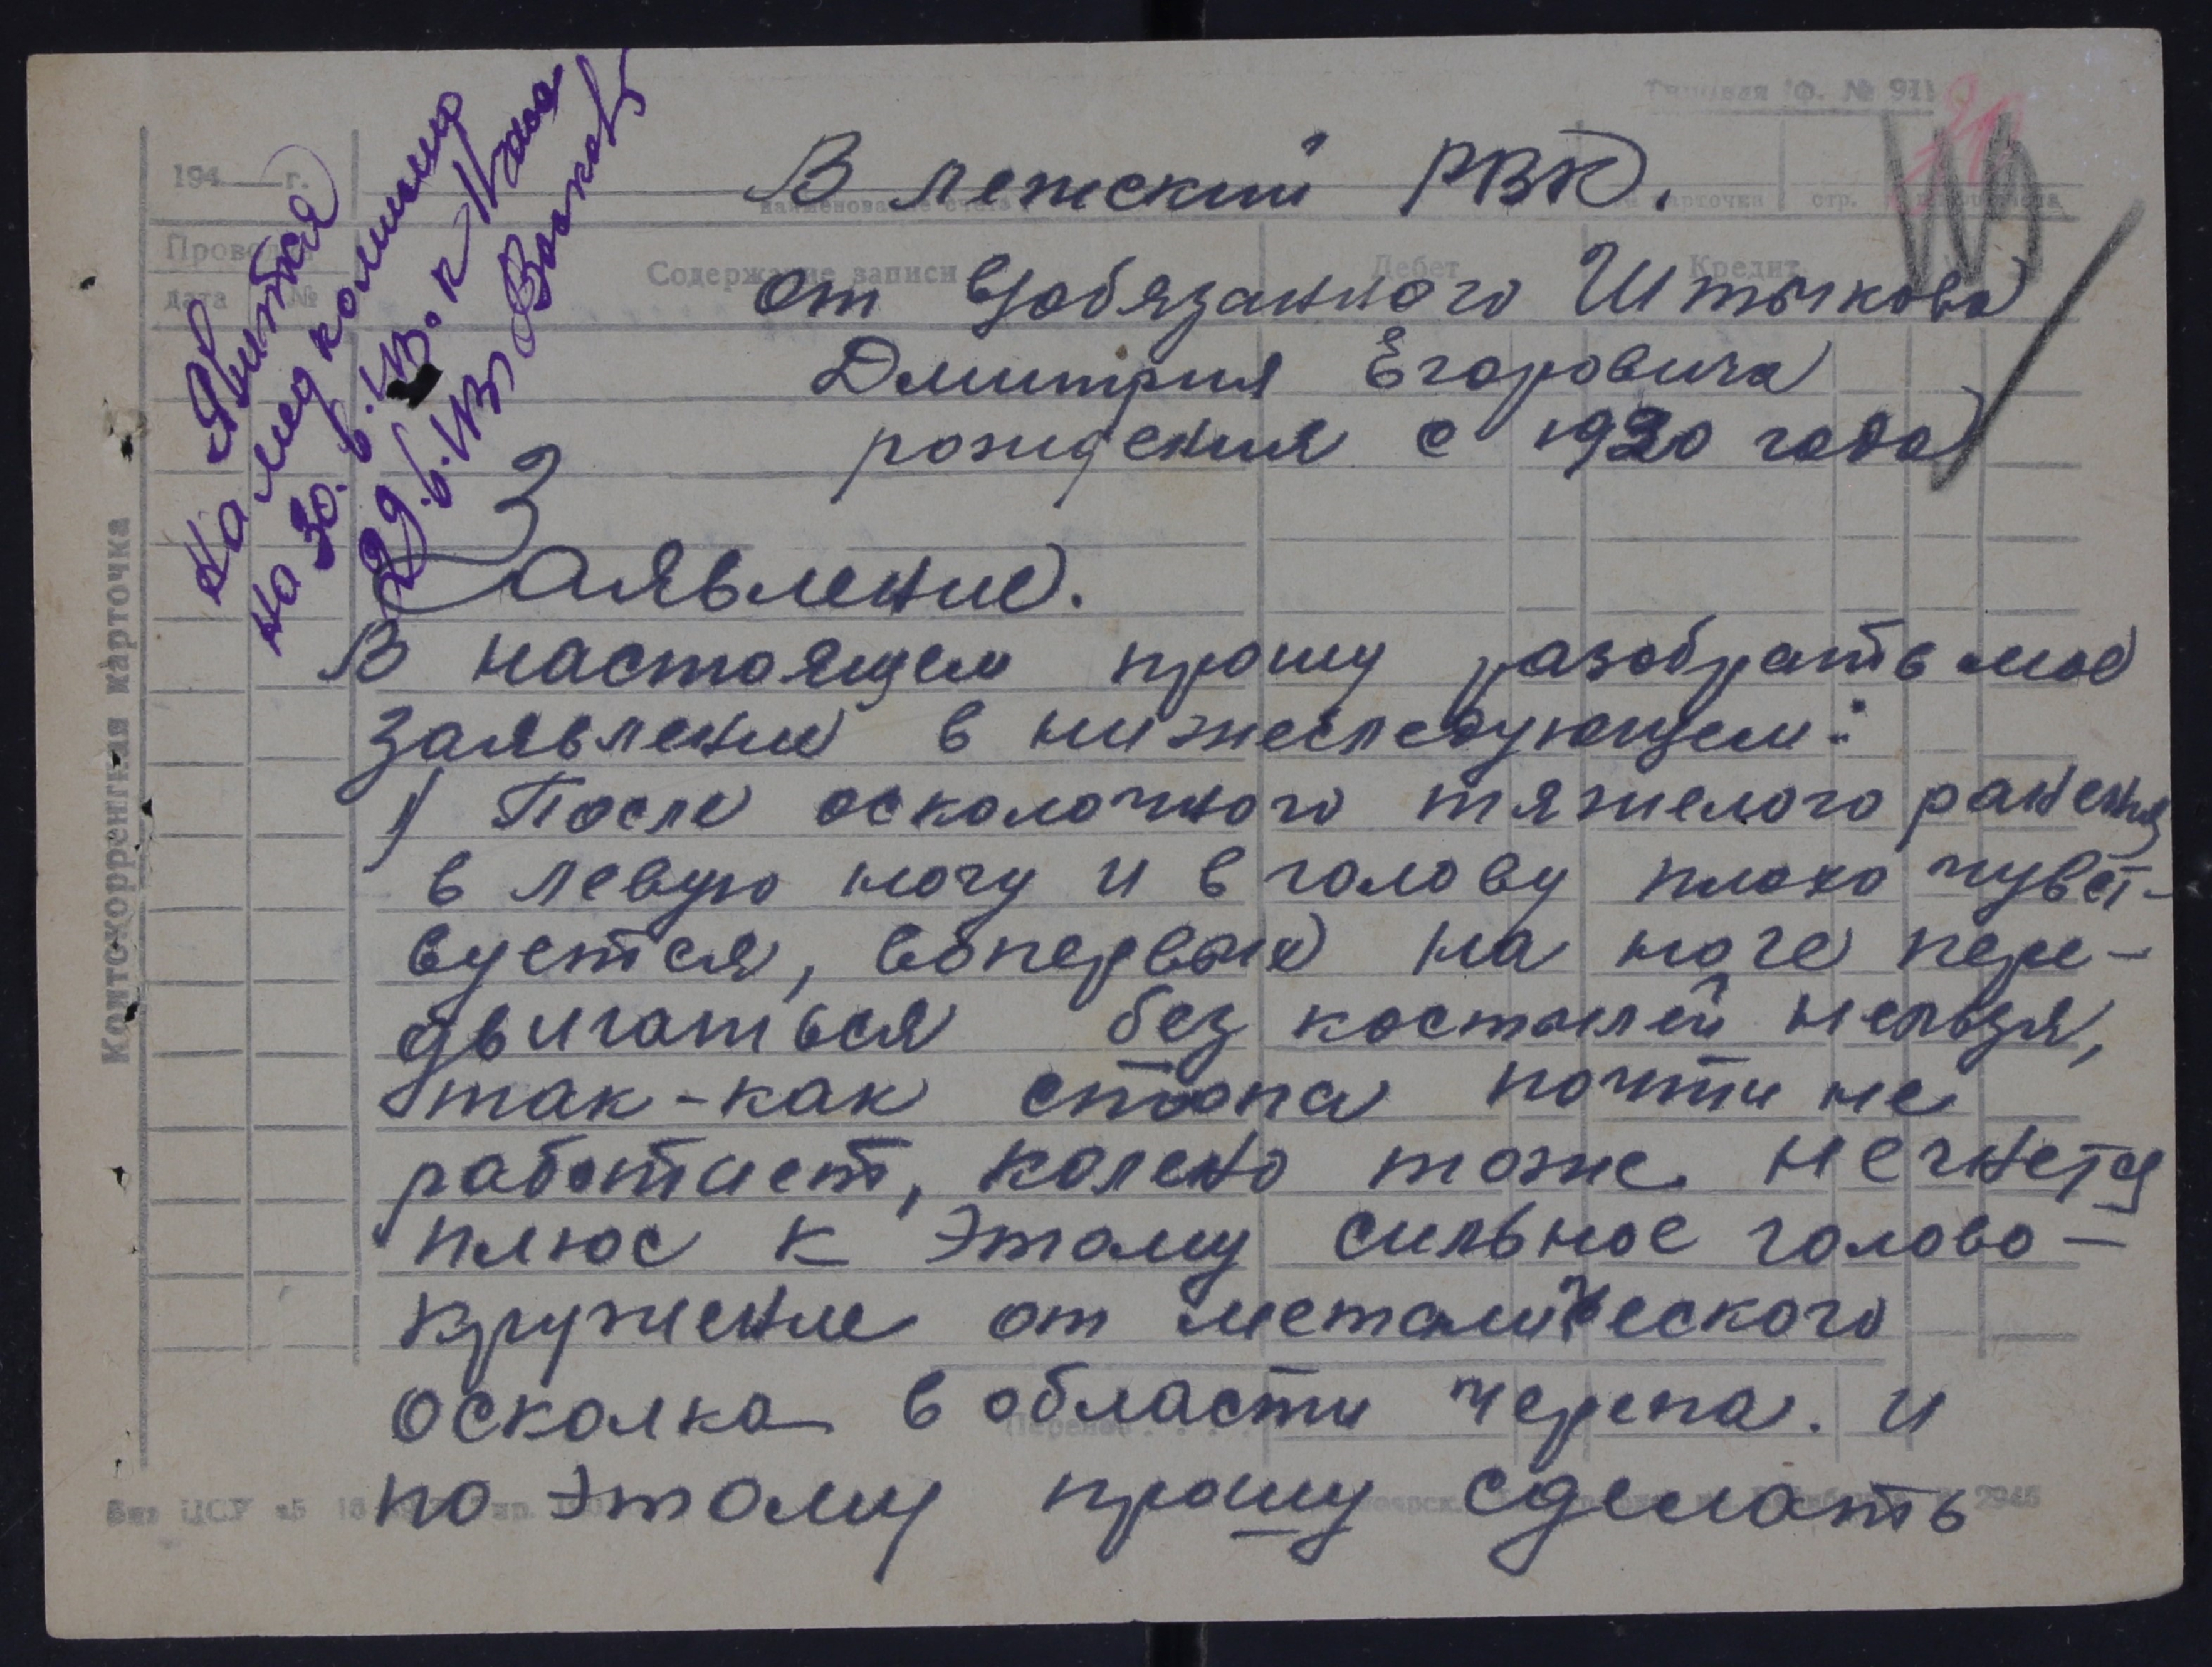 Типовая Ф. № 911
194 г.
наименование счета
карточка стр.
Проводка
дата №
Содержание записи
Дебет
Кредит
Контокоррентная карточка
Явиться
на мед комиссию
на 30.
29.
В лежский РВК.
от в/обязанного Штыкова
Дмитрия Егоровича
рождения с 1920 года
Заявление.
В настоящем прошу разобрать мое
заявление в нижеследующем:
1) После осколочного тяжелого ранения
в левую ногу и в голову плохо чувст-
вуется, вопервых на ноге пере-
двигаться без костылей нельзя,
так-как стопа почти не
работает, колено тоже негнется
плюс к этому сильное голово-
кружение от металического
осколка в области черепа. и
по этому прошу сделать